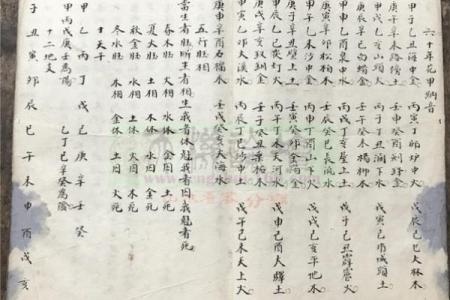 六十年花甲納音
甲子乙丑海中金 丙寅丁卯炉中火 戊辰己巳大林木
庚午辛未路傍土 壬申癸酉剑鋒金
甲戌乙亥山頭火 丙子丁丑澗下水 戊寅己卯城頭土
庚辰辛巳白蠟金 壬午癸未楊柳木
甲申乙酉泉中水 丙戌丁亥屋上土 戊子己丑霹靂火
庚寅辛卯松柏木 壬辰癸巳長流水
甲午乙未沙中金 丙申丁酉山下火 戊戌己亥平地木
庚子辛丑壁上土 壬寅癸卯金箔金
甲辰乙巳覆灯火 丙午丁未天河水 戊申己酉大驛土
庚戌辛亥釵釧金 壬子癸丑桑柘木
甲寅乙卯大溪水 丙辰丁巳沙中土 戊午己未天上火
庚申辛酉石榴木 壬戌癸亥大海水
五行旺相
當生者旺 所生者相 生我者休 剋我者囚 我剋者死
春木旺 火相 水休 金囚 土死
夏火旺 土相 木休 水囚 金死
秋金旺 水相 土休 火囚 木死
冬水旺 木相 金休 土囚 火死
十天干
甲乙丙丁戊己庚辛壬癸
甲丙戊庚壬為陽 乙丁己辛癸為陰
十二地支
子丑寅卯辰巳午未申酉戌亥